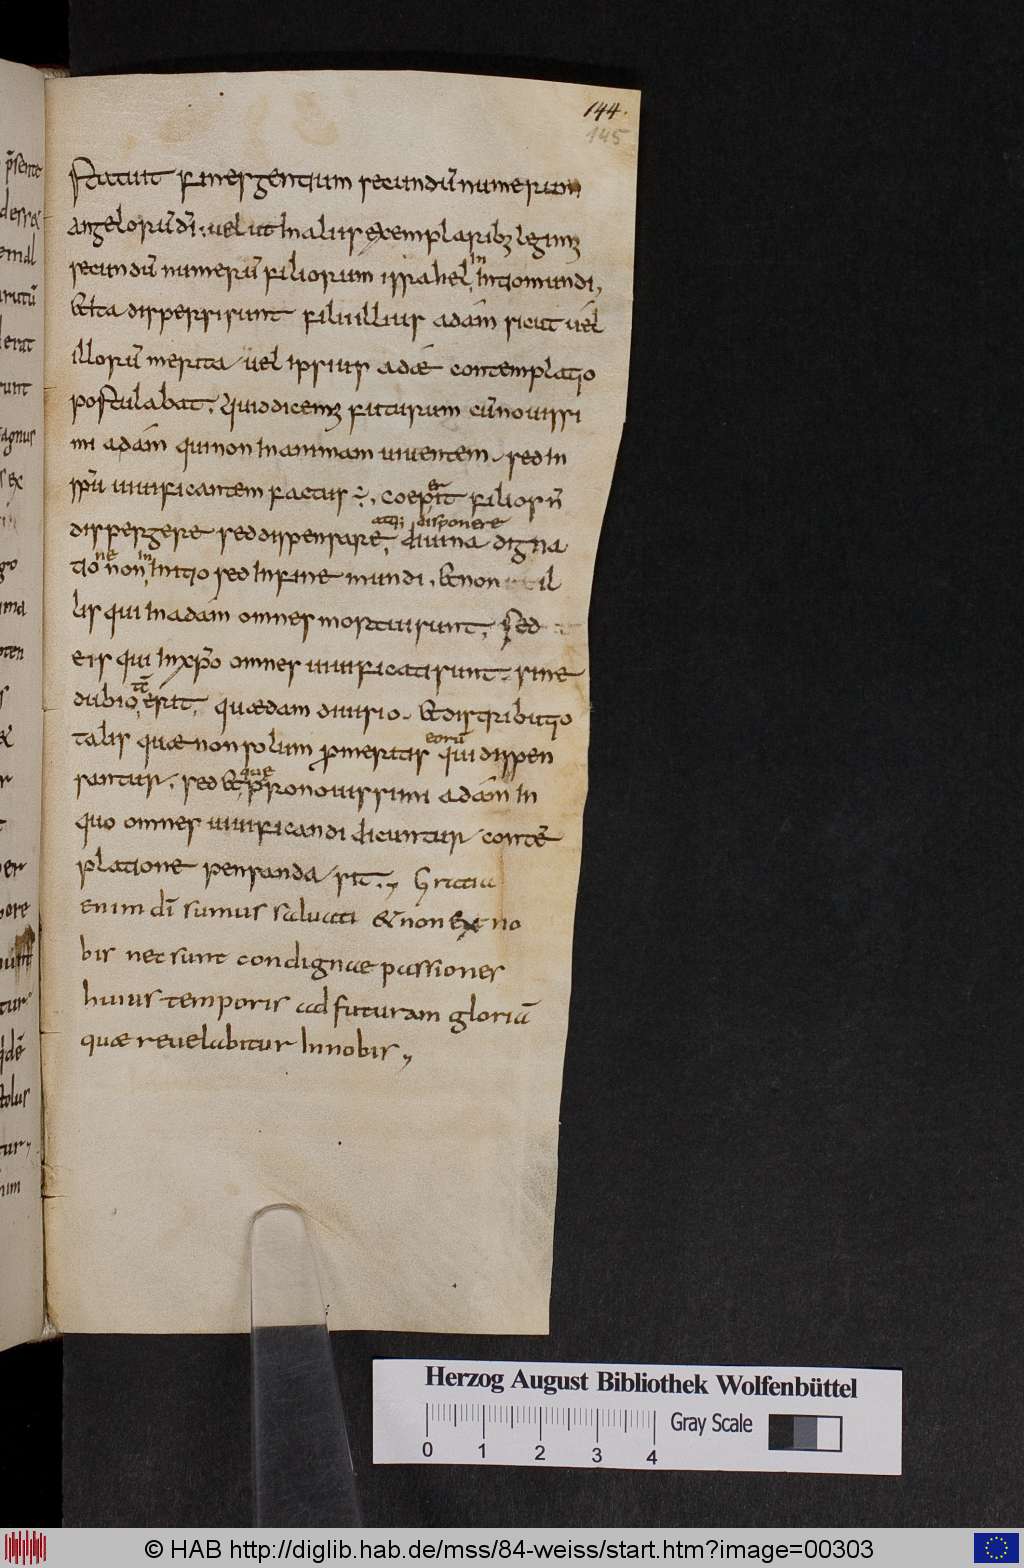 144.
145
statuit fines gentium secundū numerum
angelorū dī: vel ut in aliis exemplarib; legim;
secundū numerū filiorum israhel, in initio mundi,
& ita dispersi sunt filii illius adām sicut vel
illorū merita vel ipsius adae contemplatio
postulabat, quid dicem; futurum cū novissi
mi adām qui non in animam viventem sed in
spū vivificantem factus ÷, coeperit filios ñ
dispergere sed dispensare, atq; disponere divina digna
tione non in initio sed in fine mundi, & non il
lis qui in adam omnes mortui sunt, sed
eis qui in xpō omnes vivificati sunt, sine
dubio tē erit, quaedam divisio & distributio
talis quae non solum pro meritis eorū qui dispen
santur, sed & que pro novissimi adām in
quo omnes vivificandi dicuntur contē
platione pensanda sit., Gratia
enim dī sumus salvati & non ex no
bis nec sunt condignae passiones
huius temporis ad futuram gloriā
quae revelabitur in nobis,
Herzog August Bibliothek Wolfenbüttel
0 1 2 3 4
Gray Scale
© HAB http://diglib.hab.de/mss/84-weiss/start.htm?image=00303